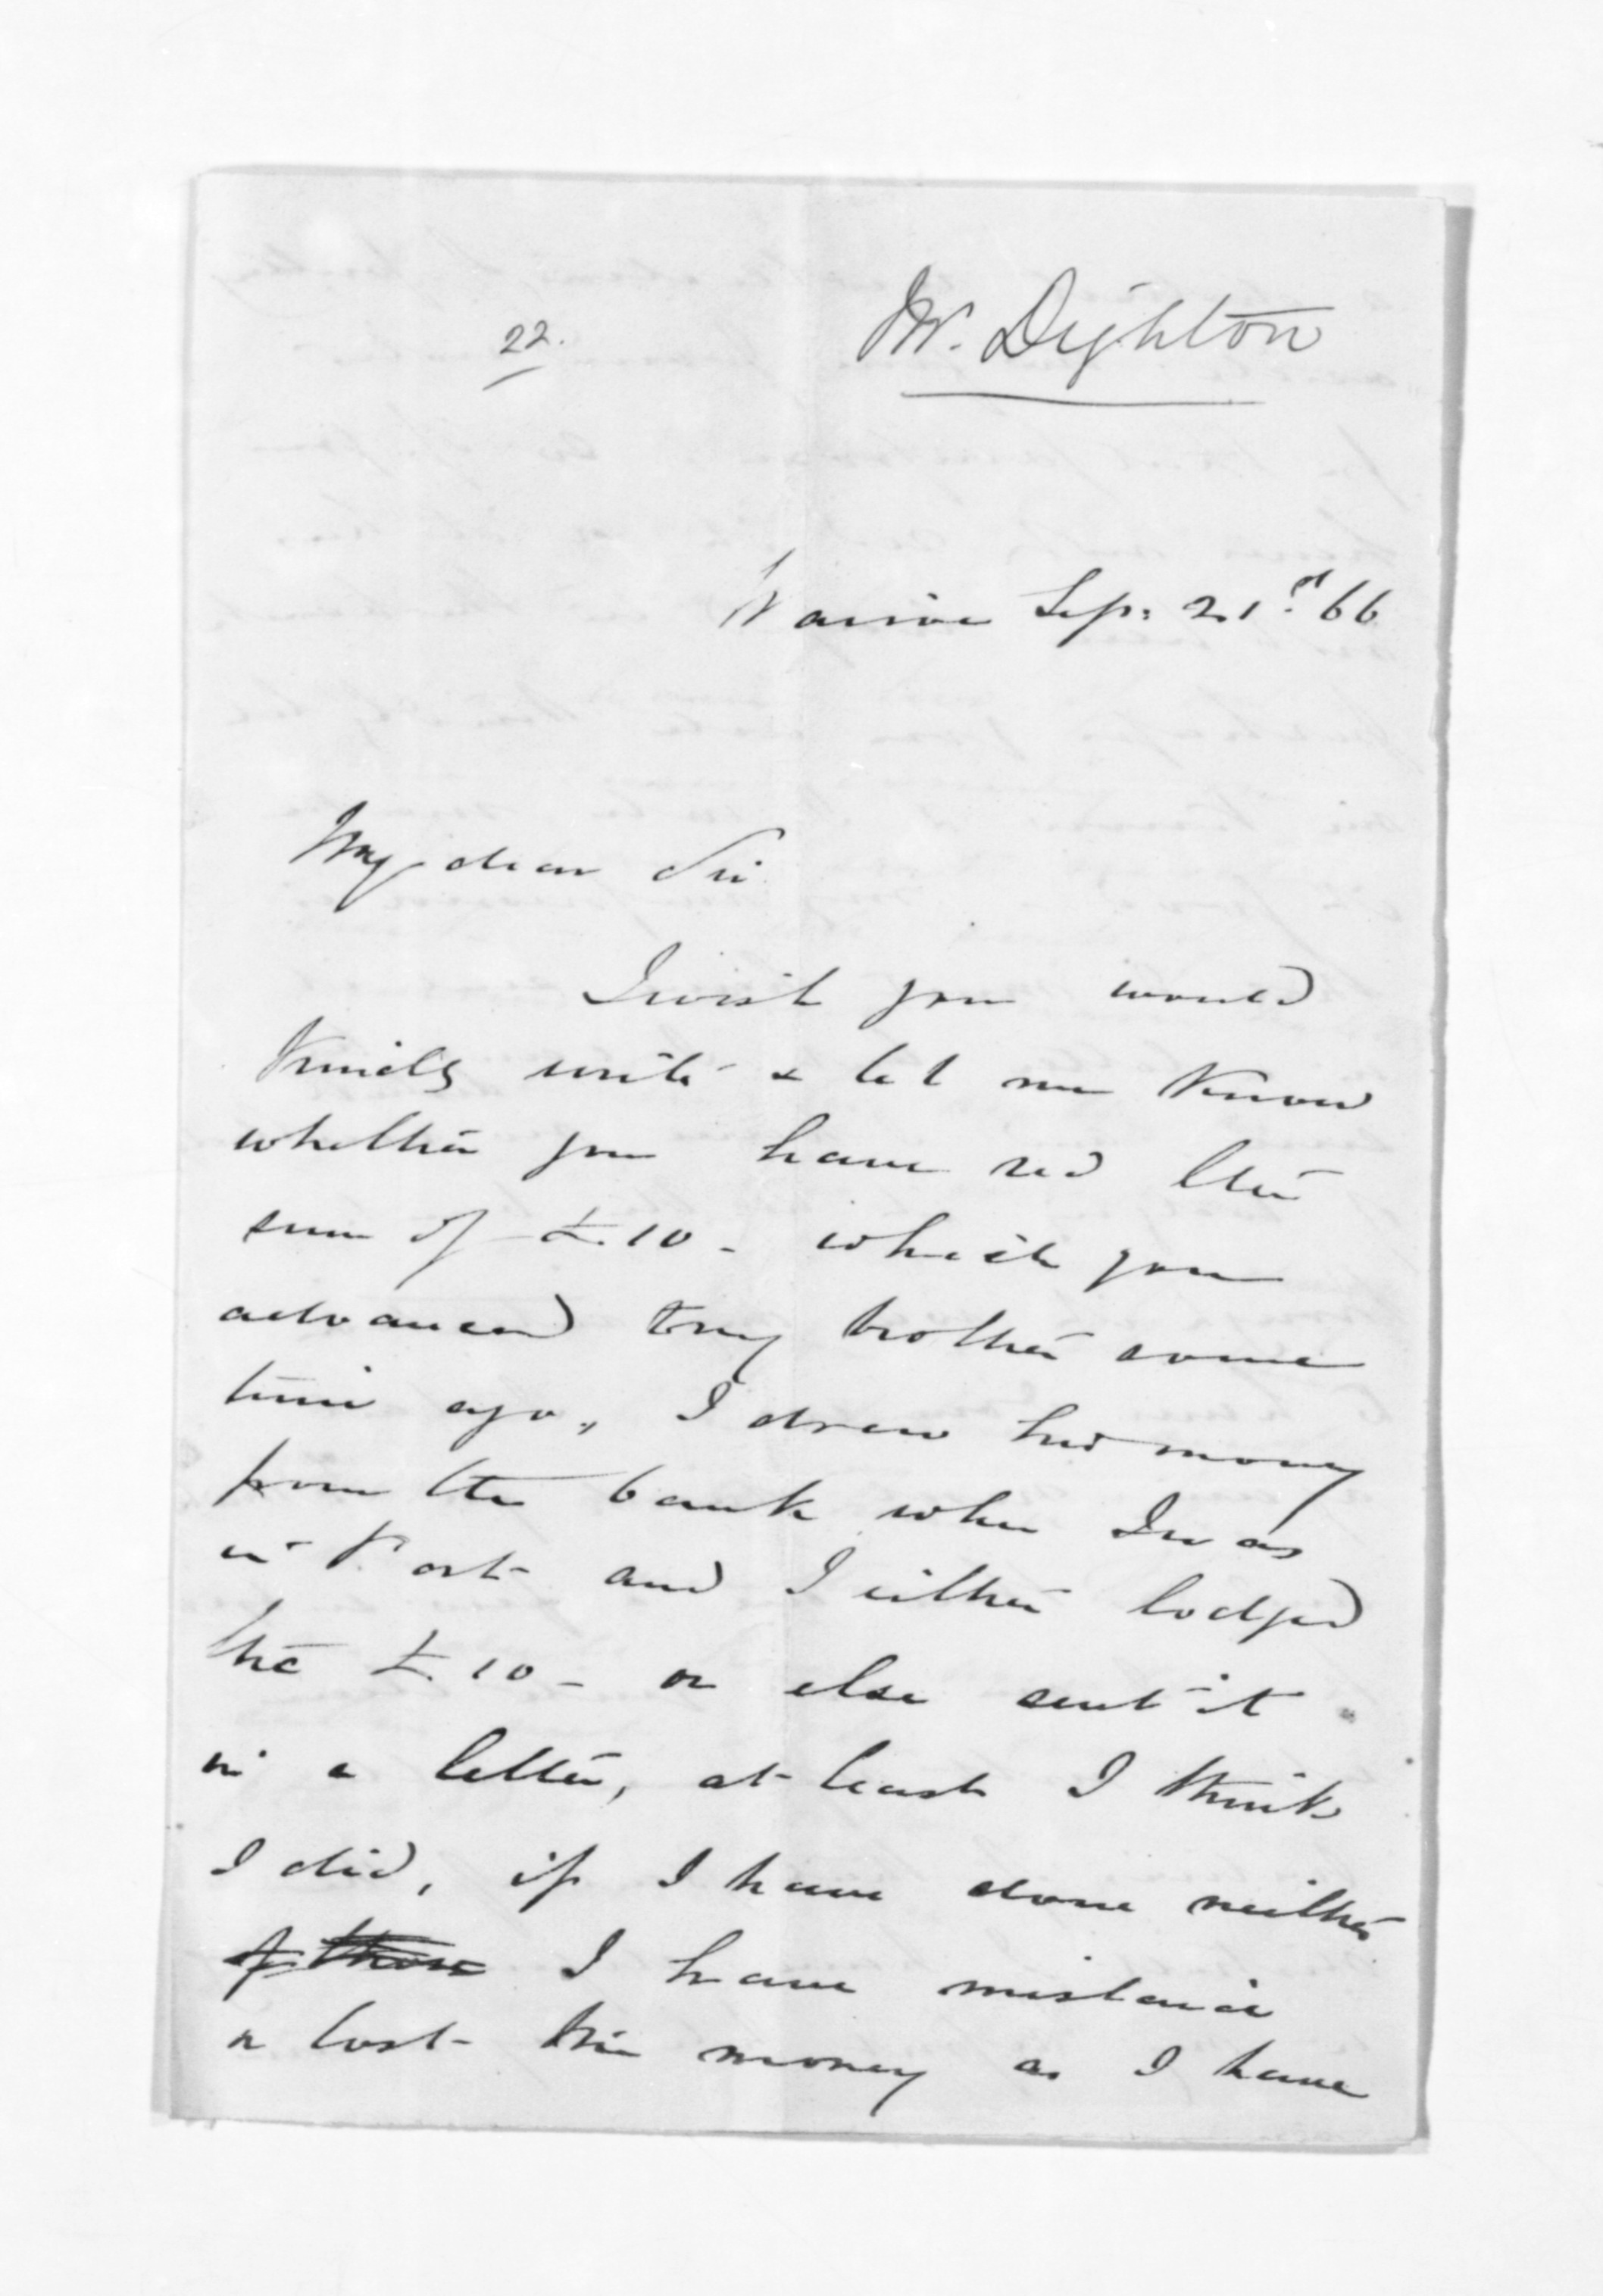 22.
W. Deighton
Wairoa Sep: 21st 66
My dear Sir
I wish you would
kindly write & let me know
whether you have recd the
sum of £10 - which you
advanced to my brother some
time ago, I drew his money
from the bank when I was
in Port and I either lodged
the £10 - or else sent it
in a letter, at least I think
I did, if I have done neither
of these I have mislaid
or lost the money as I have